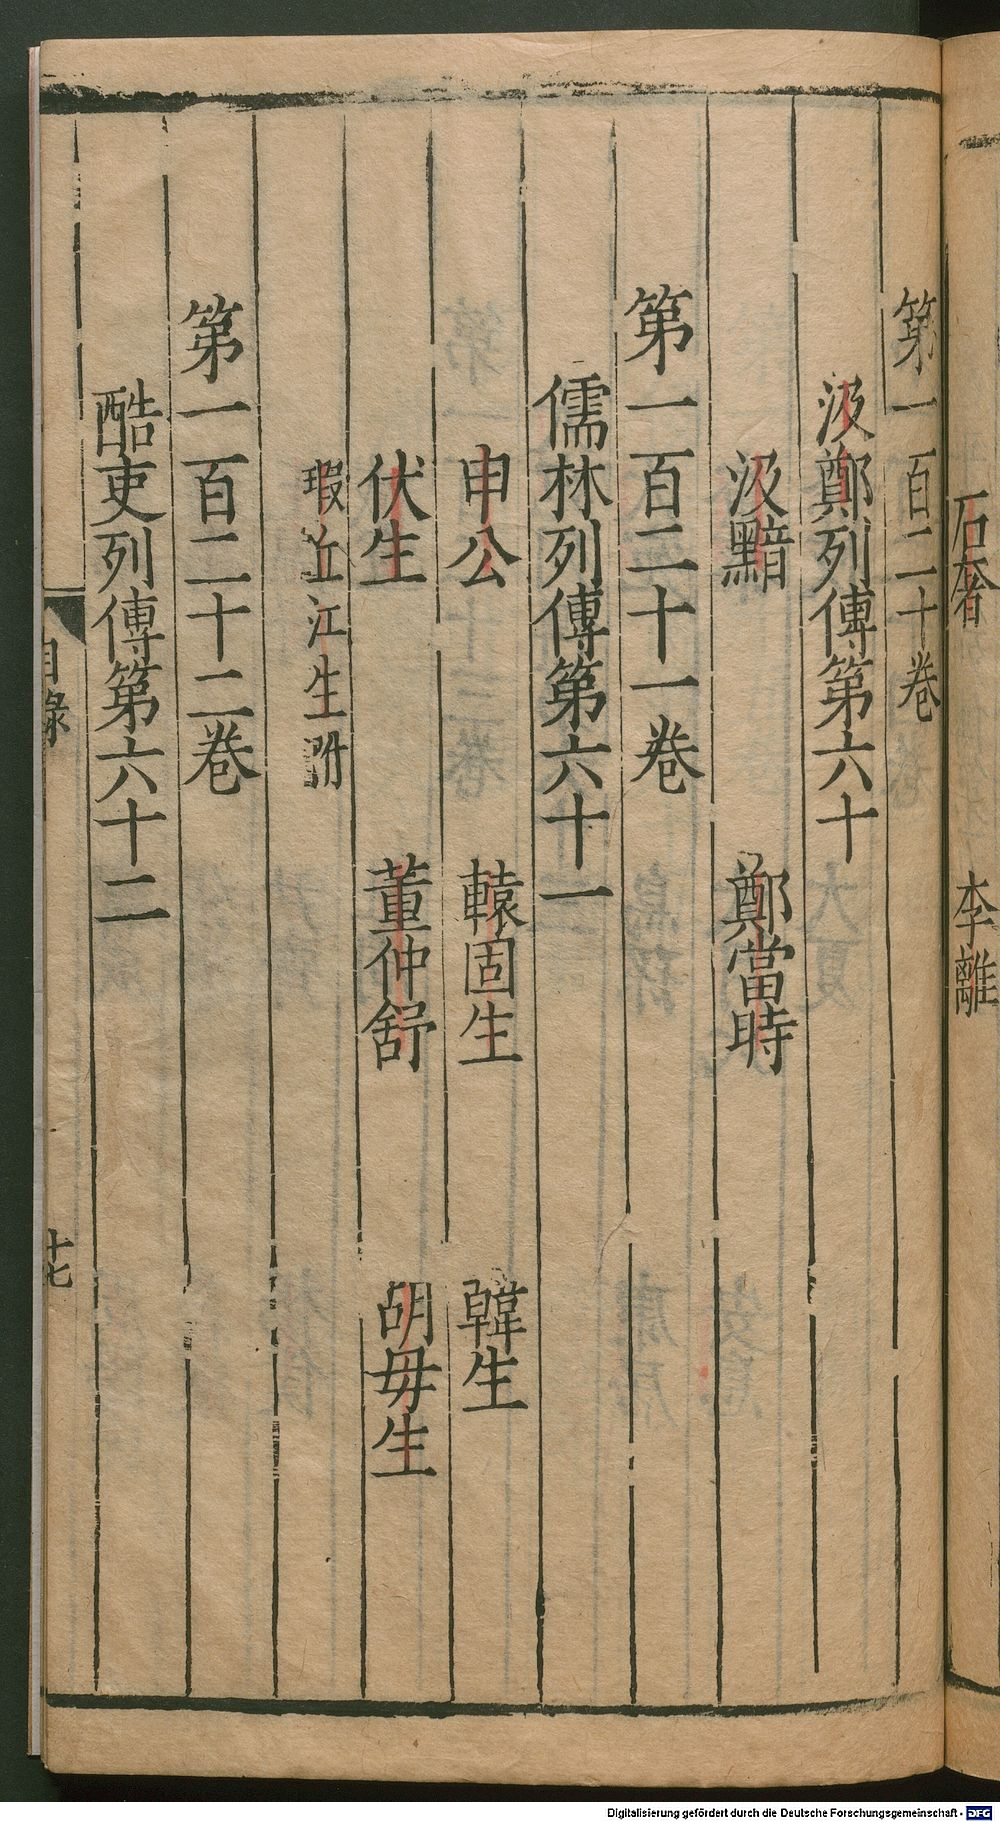 石奢　李離
第一百二十卷
汲鄭列傳第六十
汲黯　鄭當時
第一百二十一卷
儒林列傳第六十一
申公　轅固生　韓生
伏生　董仲舒　胡毋生
瑕丘江生附
第一百二十二卷
酷吏列傳第六十二
目錄　十七
Digitalisierung gefördert durch die Deutsche Forschungsgemeinschaft - DFG